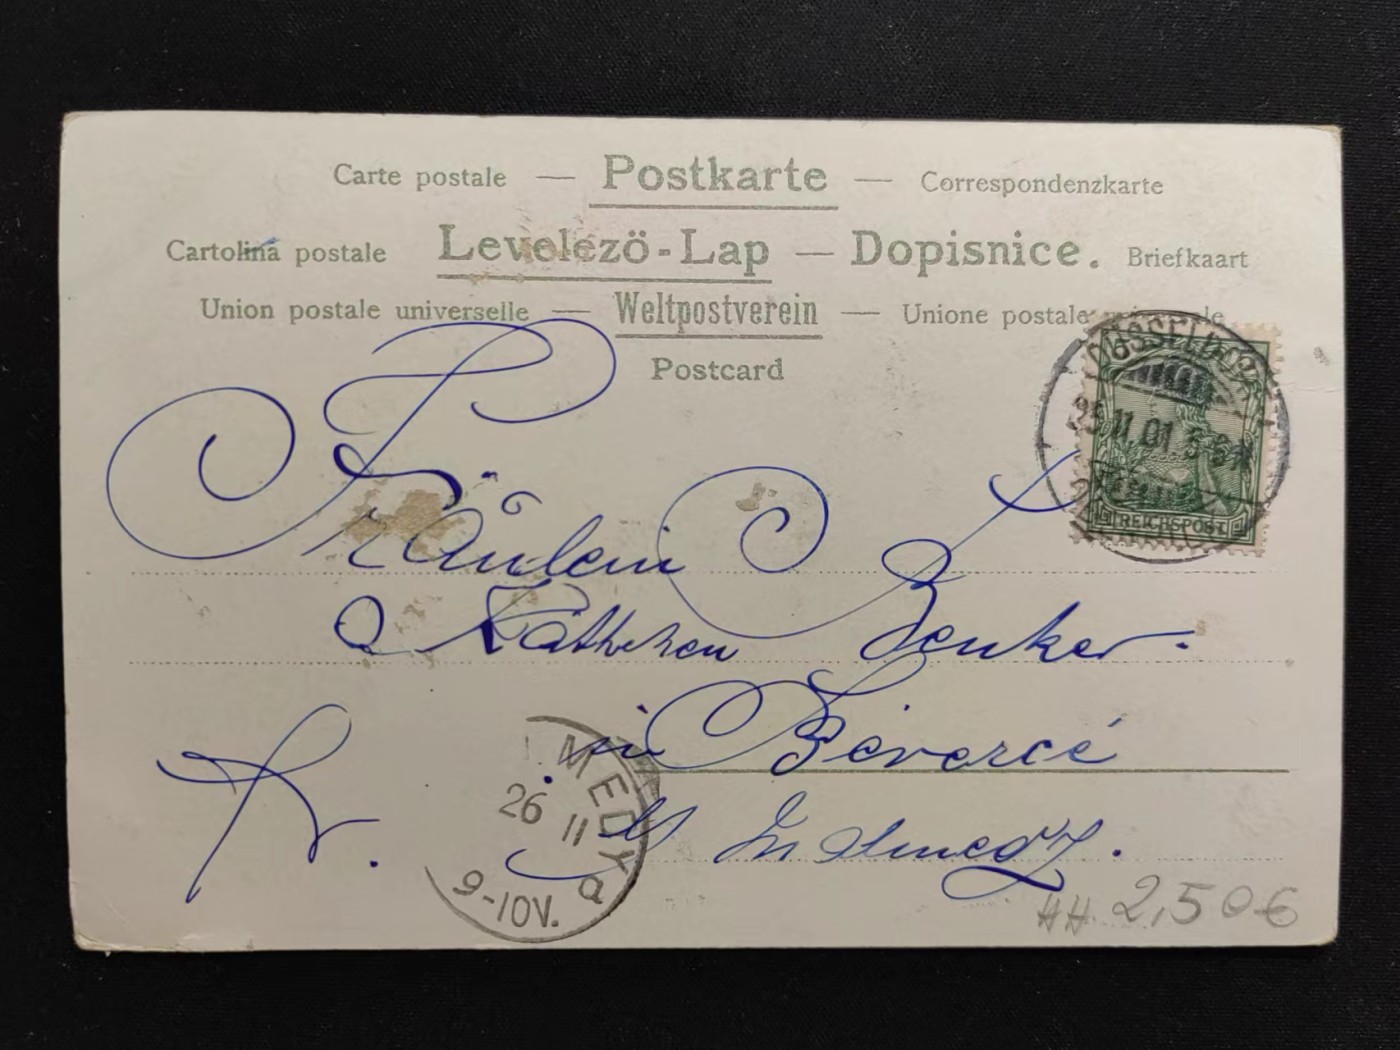 Carte postale — Postkarte — Correspondenzkarte
Cartolina postale Levelező-Lap — Dopisnice. Briefkaart
Union postale universelle — Weltpostverein — Unione postale
Postcard
DÜSSELDORF
25.11.01 5-6N
REICHSPOST
Fräulein
Käthchen Benker.
in Bévercé
MEDY
26 11
9-10V.
a
2,50€